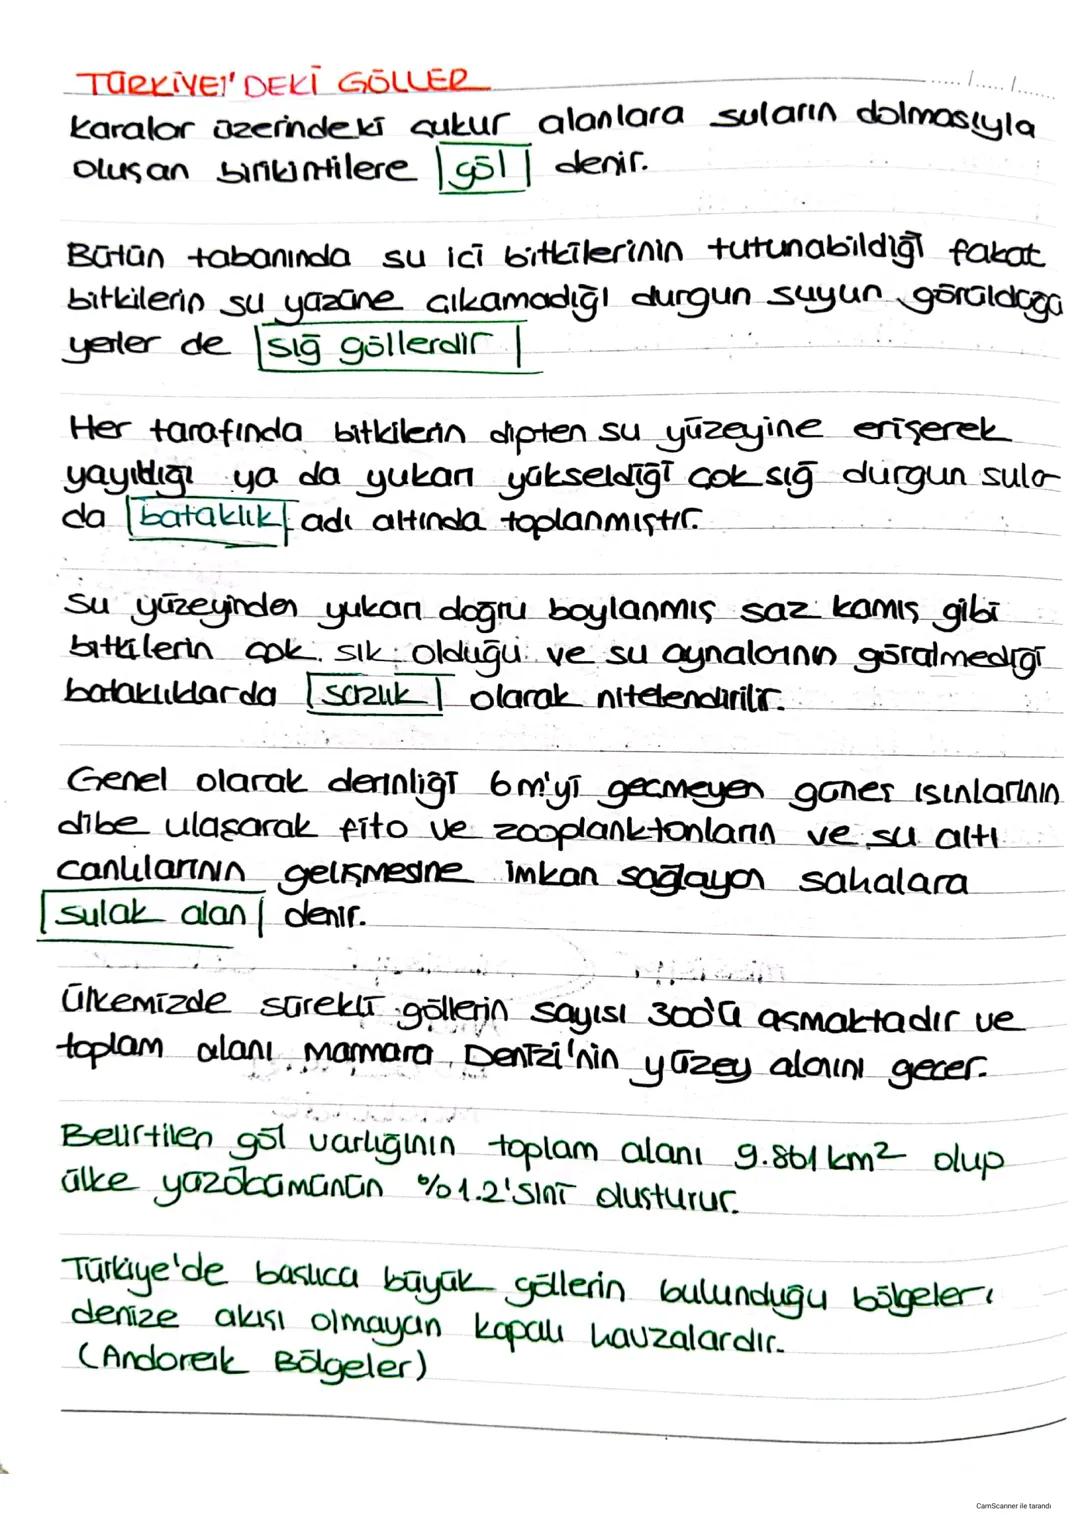 TÜRKİYE'DEKİ GÖLLER
...../...../.......
Karalar üzerindeki çukur alanlara suların dolmasıyla
oluşan birikintilere göl denir.
Bütün tabanında su içi bitkilerinin tutunabildiği fakat
bitkilerin su yüzüne çıkamadığı durgun suyun görüldüğü
yerler de sığ göllerdir
Her tarafında bitkilerin dipten su yüzeyine erişerek
yayıldığı ya da yukarı yükseldiği çok sığ durgun sular
da bataklık adı altında toplanmıştır.
Su yüzeyinden yukarı doğru boylanmış saz kamış gibi
bitkilerin çok sık olduğu ve su aynalarının görülmediği
bataklıklarda sazlık olarak nitelendirilir.
Genel olarak derinliği 6m'yi geçmeyen güneş ışınlarının
dibe ulaşarak fito ve zooplanktonların ve su altı
canlılarının gelişmesine imkan sağlayan sahalara
sulak alan denir.
Ülkemizde sürekli göllerin sayısı 300'ü aşmaktadır ve
toplam alanı Marmara Denizi'nin yüzey alanını geçer.
Belirtilen göl varlığının toplam alanı 9.861 km² olup
ülke yüzölçümünün %1.2'sini oluşturur.
Türkiye'de başlıca büyük göllerin bulunduğu bölgeler
denize akışı olmayan kapalı havzalardır.
(Andoreik Bölgeler)
CamScanner ile tarandı